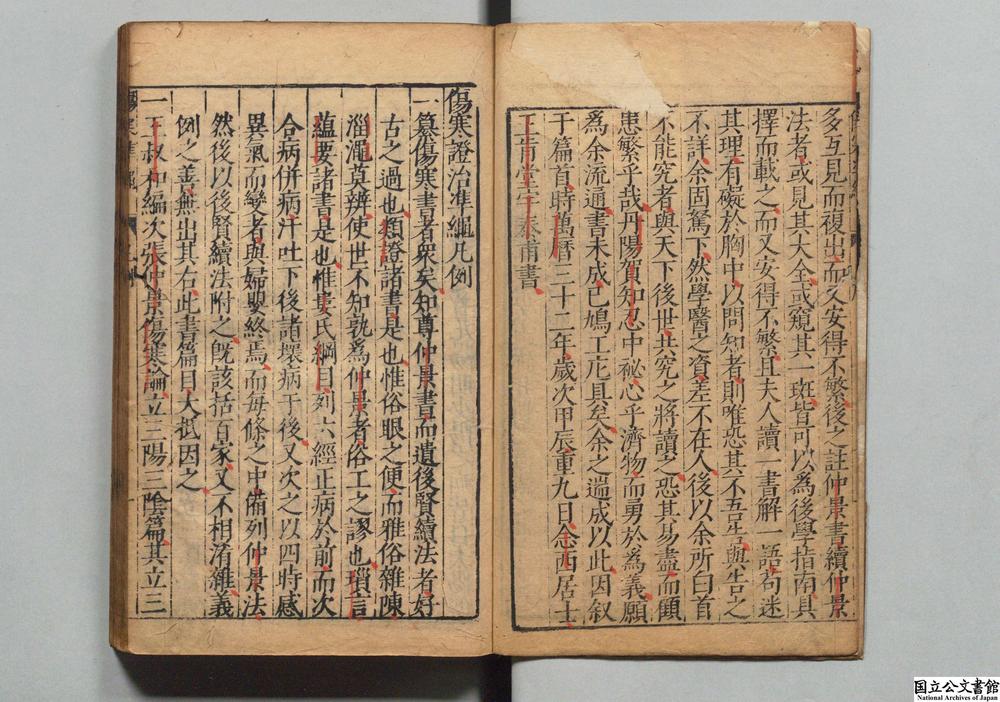 多互見而複出而又安得不繁後之註仲景書續仲景
法者或見其大全或窺其一斑皆可以為後學指南具
擇而載之而又安得不繁且夫人讀一書解一語苟迷
其理有礙於胸中以問知者則唯恐其不吾告與告之
不詳余固駑下然學醫之資差不在人後以余所白首
不能究者與天下後世共究之將讀之恐其易盡而顧
患繁乎哉丹陽賀知忍中秘心乎濟物而勇於為義願
為余流通書未成已鳩工庀具矣余之遄成以此因叙
于篇首時萬曆三十二年歲次甲辰重九日念西居士
王肯堂宇泰甫書
傷寒證治準繩凡例
一纂傷寒書者衆矣知尊仲景書而遺後賢續法者好
古之過也類證諸書是也惟俗眼之便而雅俗雜陳
淄澠莫辨使世不知孰為仲景者俗工之謬也瑣言
蘊要諸書是也惟婁氏綱目列六經正病於前而次
合病併病汗吐下後諸壞病于後又次之以四時感
異氣而變者與婦嬰終焉而每條之中備列仲景法
然後以後賢續法附之既該括百家又不相淆雜義
例之善無出其右此書篇目大抵因之
一王叔和編次張仲景傷寒論立三陽三陰篇其立三
国立公文書館
National Archives of Japan